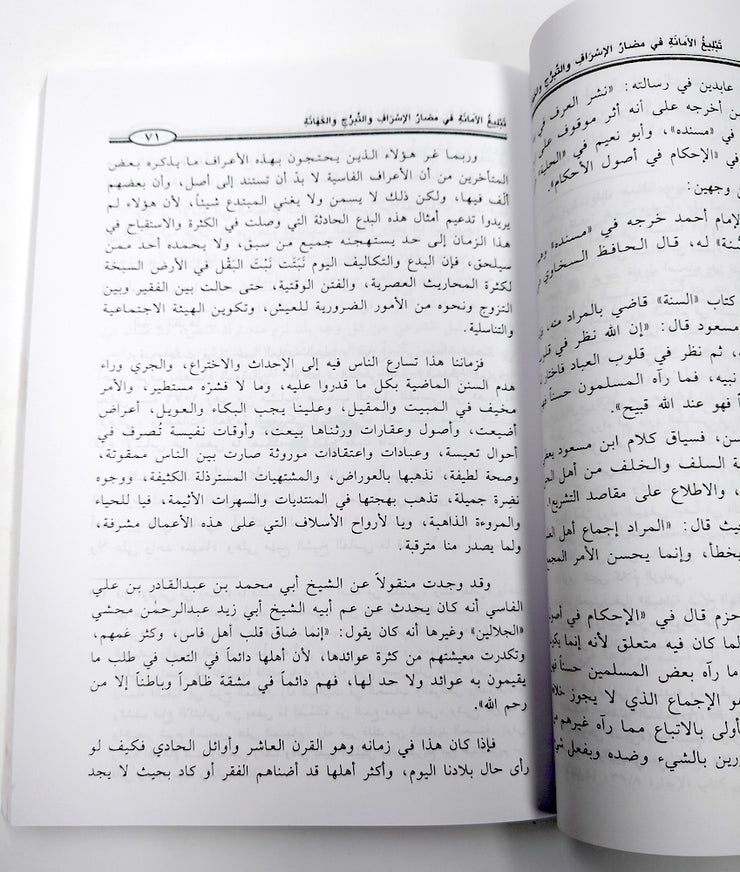 تَبْلِيغُ الأمَانَةِ في مضارِّ الإسْرَافِ والتَّبرُّجِ والكَهَانَةِ
٧١
وربما غر هؤلاء الذين يحتجون بهذه الأعراف ما يذكره بعض
المتأخرين من أن الأعراف الفاسية لا بدّ أن تستند إلى أصل، وأن بعضهم
ألّف فيها، ولكن ذلك لا يسمن ولا يغني المبتدع شيئاً، لأن هؤلاء لم
يريدوا تدعيم أمثال هذه البدع الحادثة التي وصلت في الكثرة والاستقباح في
هذا الزمان إلى حد يستهجنه جميع من سبق، ولا يحمده أحد ممن
سيلحق، فإن البدع والتكاليف اليوم نَبَتَت نَبْتَ البَقْل في الأرض السبخة
لكثرة المحاريث العصرية، والفتن الوقتية، حتى حالت بين الفقير وبين
التزوج ونحوه من الأمور الضرورية للعيش، وتكوين الهيئة الاجتماعية
والتناسلية.
فزماننا هذا تسارع الناس فيه إلى الإحداث والاختراع، والجري وراء
هدم السنن الماضية بكل ما قدروا عليه، وما لا فشرّه مستطير، والأمر
مخيف في المبيت والمقيل، وعلينا يجب البكاء والعويل، أعراض
أضيعت، وأصول وعقارات ورثناها بيعت، وأوقات نفيسة تُصرف في
أحوال تعيسة، وعبادات واعتقادات موروثة صارت بين الناس ممقوتة،
وصحة لطيفة، نذهبها بالعوراض، والمشتهيات المسترذلة الكثيفة، ووجوه
نضرة جميلة، تذهب بهجتها في المنتديات والسهرات الأثيمة، فيا للحياء
والمروءة الذاهبة، ويا لأرواح الأسلاف التي على هذه الأعمال مشرفة،
ولما يصدر منا مترقبة.
وقد وجدت منقولاً عن الشيخ أبي محمد بن عبدالقادر بن علي
الفاسي أنه كان يحدث عن عم أبيه الشيخ أبي زيد عبدالرحمٰن محشي
«الجلالين» وغيرها أنه كان يقول: «إنما ضاق قلب أهل فاس، وكثر غمهم،
وتكدرت معيشتهم من كثرة عوائدها، لأن أهلها دائماً في التعب في طلب ما
يقيمون به عوائد ولا حد لها، فهم دائماً في مشقة ظاهراً وباطناً إلا من
رحم الله».
فإذا كان هذا في زمانه وهو القرن العاشر وأوائل الحادي فكيف لو
رأى حال بلادنا اليوم، وأكثر أهلها قد أضناهم الفقر أو كاد بحيث لا يجد
تَبْلِيغُ الأمَانَةِ في مضارِّ الإسْرَافِ والتَّبرُّجِ
عابدين في رسالته: «نشر العرف في
من أخرجه على أنه أثر موقوف على
في «مسنده»، وأبو نعيم في «الحلية»
في «الإحكام في أصول الأحكام».
من وجهين:
الإمام أحمد خرجه في «مسنده»
السنة» له، قال الحافظ السخاوي في
كتاب «السنة» قاضي بالمراد منه،
مسعود قال: «إن الله نظر في قلوب
، ثم نظر في قلوب العباد فاختار
نبيه، فما رآه المسلمون حسناً
فهو عند الله قبيح».
فسياق كلام ابن مسعود
السلف والخلف من أهل
، والاطلاع على مقاصد التشريع
حيث قال: «المراد إجماع أهل
يخطأ، وإنما يحسن الأمر
حزم قال في «الإحكام في
لما كان فيه متعلق لأنه إنما
ما رآه بعض المسلمين حسناً
هو الإجماع الذي لا يجوز خلافه
أولى بالاتباع مما رآه غيرهم
بالشيء وضده وبفعل